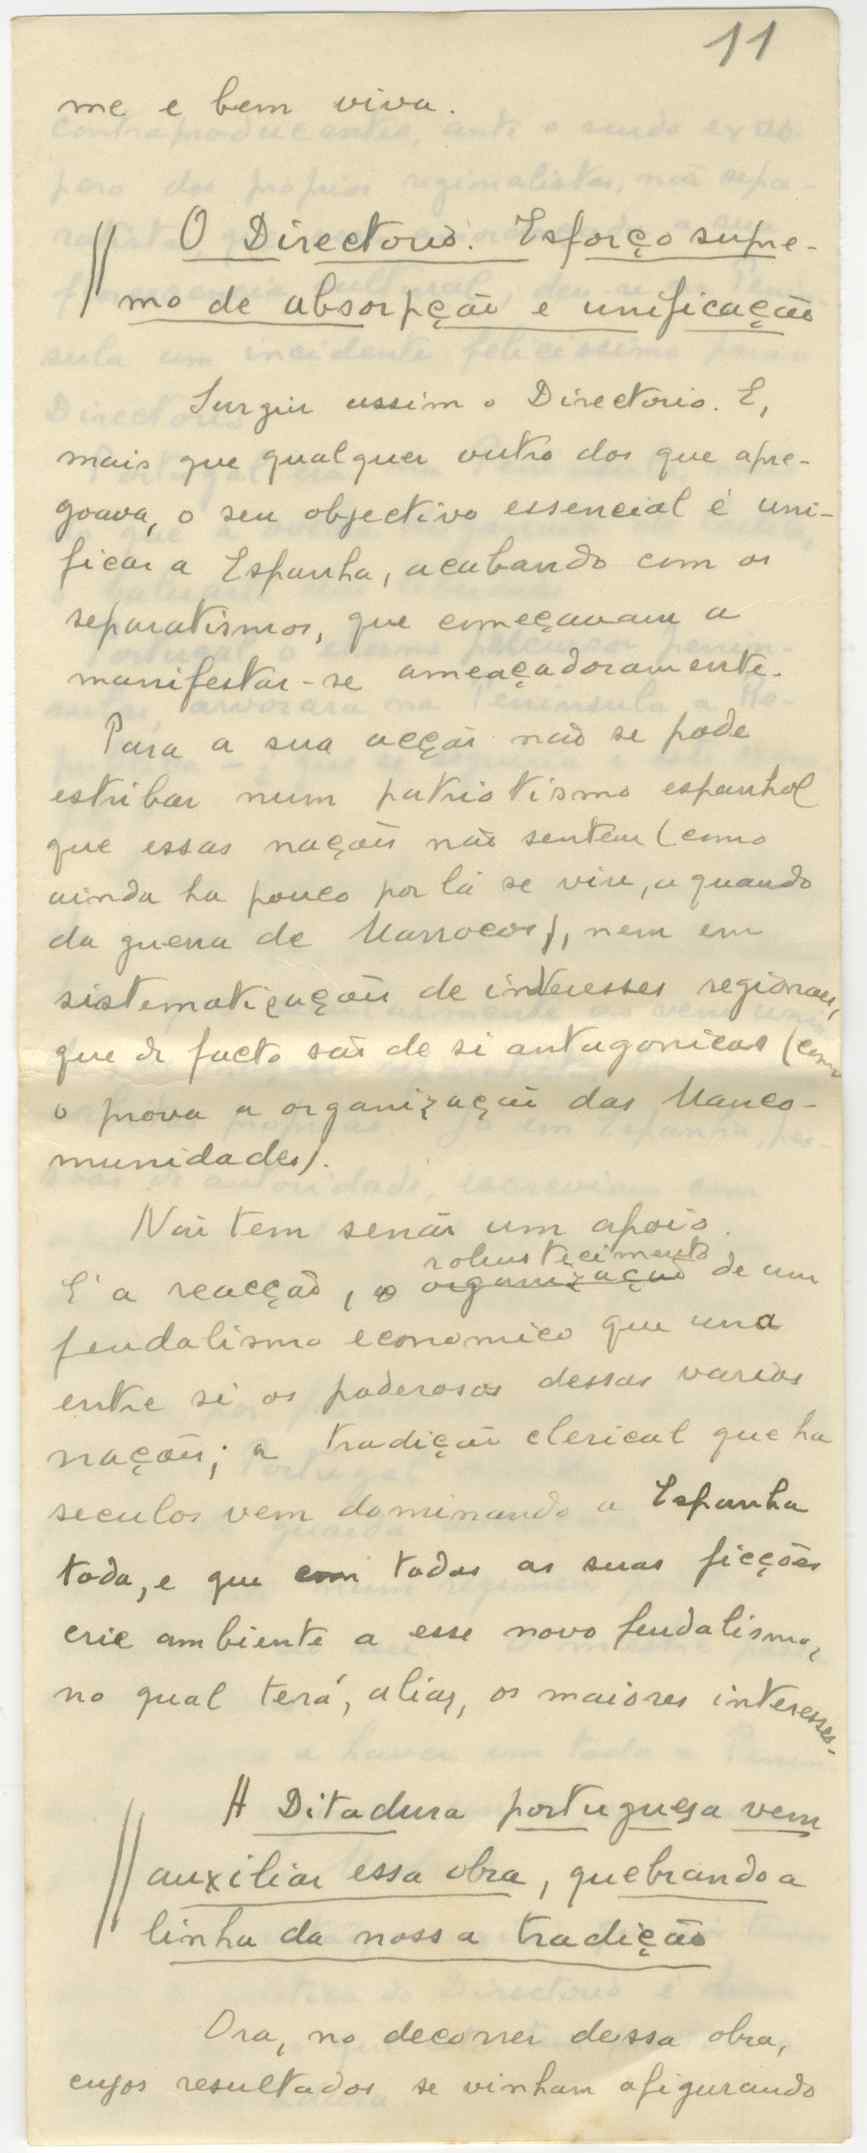 11
me e bem viva.
O Directorio. Esforço supre-
mo de absorpção e unificação
Surgiu assim o Directorio. E,
mais que qualquer outro dos que apre-
goava, o seu objectivo essencial é uni-
ficar a Espanha, acabando com os
separatismos, que começavam a
manifestar-se ameaçadoramente.
Para a sua acção não se pode
estribar num patriotismo espanhol
que essas nações não sentem (como
ainda ha pouco por lá se viu, a quando
da guerra de Marrocos), nem em
sistematizações de interesses regionais,
que de facto são de si antagonicos (como
o prova a organização das Manco-
munidades).
Não tem senão um apoio.
robustecimento
E' a reacção, o organização de um
feudalismo economico que una
entre si os poderosos dessas varias
nações; a tradição clerical que ha
seculos vem dominando a Espanha
toda, e que com todas as suas ficções
crie ambiente a esse novo feudalismo,
no qual terá, alias, os maiores interesses.
A Ditadura portuguesa vem
auxiliar essa obra, quebrando a
linha da nossa tradição
Ora, no decorrer dessa obra,
cujos resultados se vinham afigurando